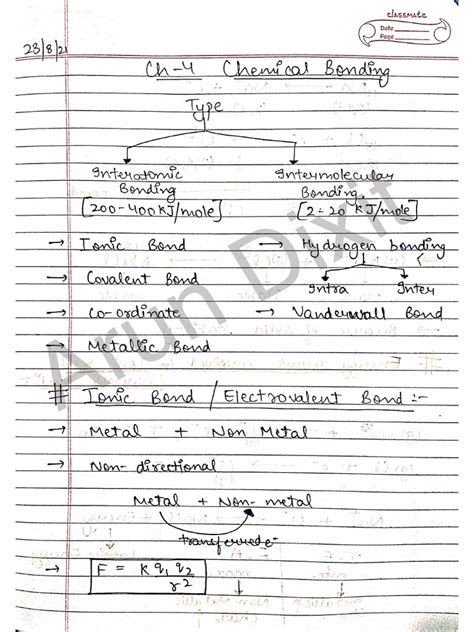 classmate
Date
Page
23/8/21
Ch-4 Chemical Bonding
Type
Interatomic Bonding
[200-400 kJ/mole]
Intermolecular Bonding
[2-20 kJ/mole]
→ Ionic Bond
→ Hydrogen bonding
Intra Inter
→ Covalent Bond
→ Co-ordinate
→ Vanderwall Bond
→ Metallic Bond
# Ionic Bond / Electrovalent Bond :-
→ Metal + Non Metal
→ Non-directional
Metal + Non-metal
transferred e-
→ F = K q1 q2 / r2
Arun Dixit